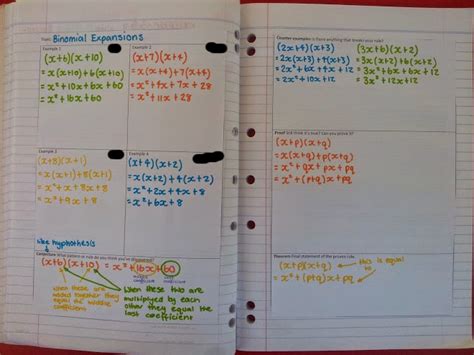 Topic: Binomial Expansions
Example 1
(x+6)(x+10)
= x(x+10)+6(x+10)
= x²+10x+6x+60
= x²+16x+60
Example 2
(x+7)(x+4)
= x(x+4)+7(x+4)
= x²+4x+7x+28
= x²+11x+28
Example 3
(x+8)(x+1)
= x(x+1)+8(x+1)
= x²+x+8x+8
= x²+9x+8
Example 4
(x+4)(x+2)
= x(x+2)+4(x+2)
= x²+2x+4x+8
= x²+6x+8
like hyphothesis
Conjecture What pattern or rule do you think you've discovered?
(x+6)(x+10) = x²+16x+60
middle coefficient
last coefficient
when these are added together they equal the middle coefficient
when these two are multiplyed by each other they equal the last coefficient
Counter examples Is there anything that breaks your rule?
(2x+4)(x+3)
= 2x(x+3)+4(x+3)
= 2x²+6x+4x+12
= 2x²+10x+12
(3x+6)(x+2)
= 3x(x+2)+6(x+2)
= 3x²+6x+6x+12
= 3x²+12x+12
Proof So think it's true? Can you prove it?
(x+p)(x+q)
= x(x+q)+p(x+q)
= x²+(p+q)x+pq
= x²+(p+q)x+pq
Theorem Final statement of the proven rule.
(x+p)(x+q)
= x²+(p+q)x+pq
this is equal to